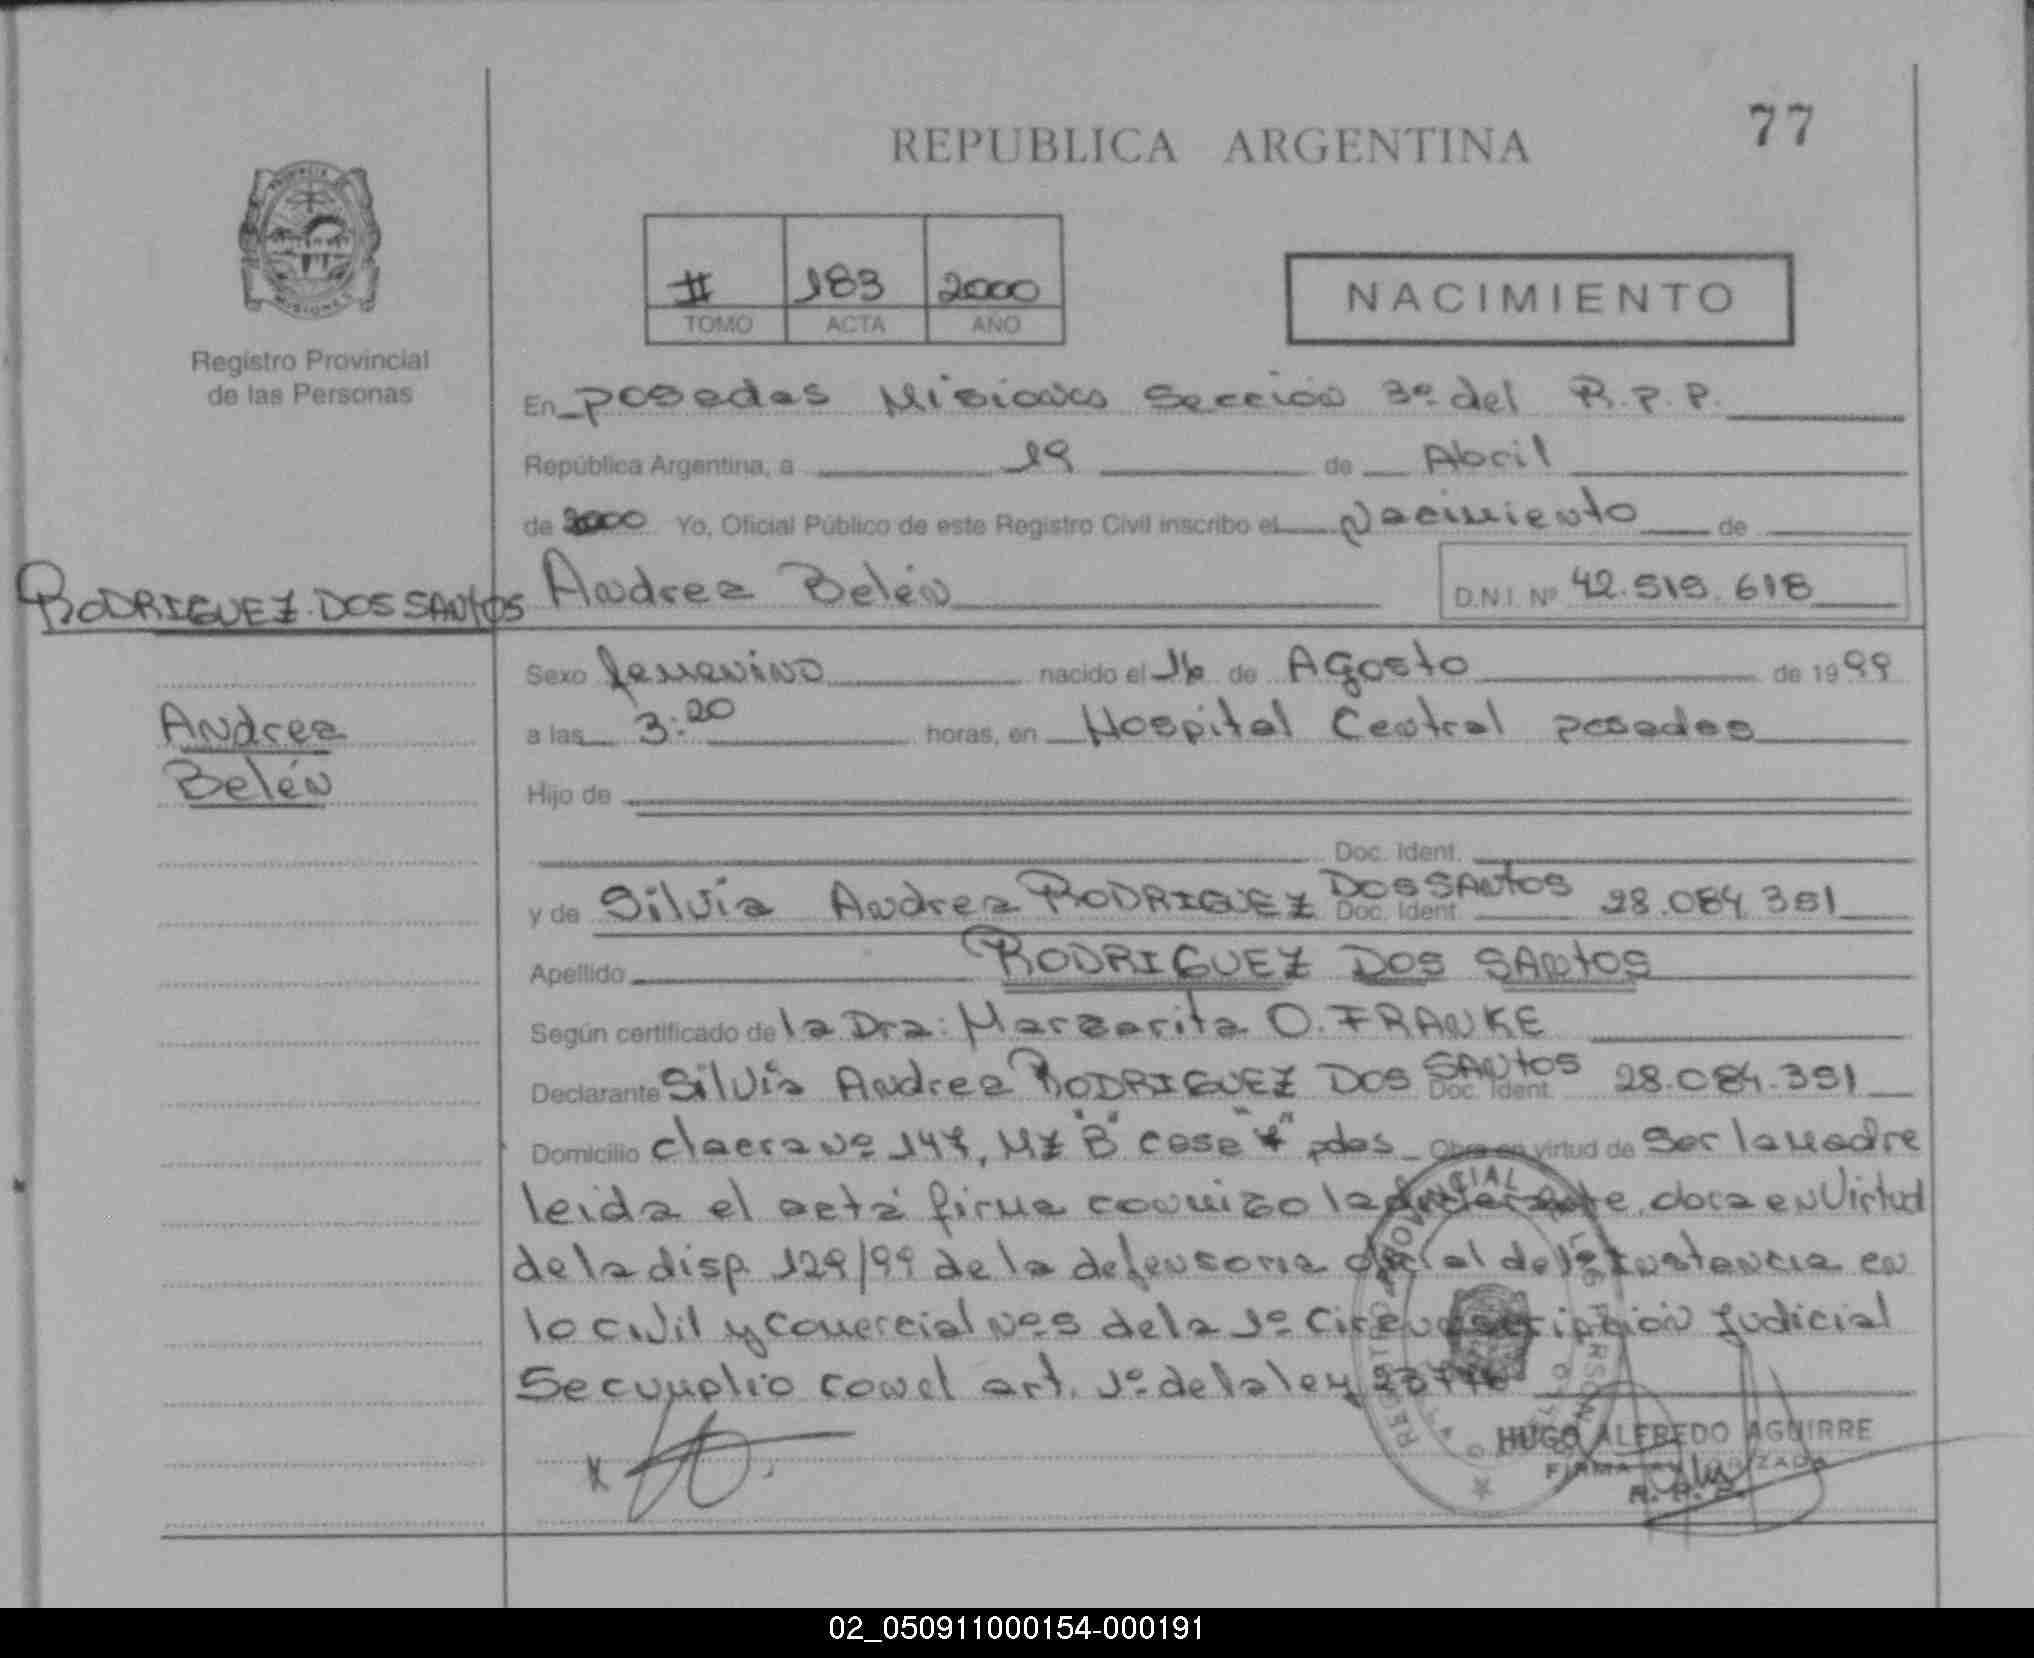 77
REPUBLICA ARGENTINA
PROVINCIA DE
MISIONES
Registro Provincial
de las Personas
II 183 2000
TOMO ACTA AÑO
NACIMIENTO
En posadas Misiones Sección 3º del R.P.P.
República Argentina, a 19 de Abril
de 2000 Yo, Oficial Público de este Registro Civil inscribo el Nacimiento de
RODRIGUEZ DOS SANTOS Andrea Belén D.N.I. Nº 42.519.618
Sexo femenino nacido el 16 de Agosto de 1999
Andrea
Belén
a las 3:20 horas, en Hospital Central posadas
Hijo de
Doc. Ident.
y de Silvia Andrea RODRIGUEZ DOS SANTOS Doc. Ident. 28.084.351
Apellido RODRIGUEZ DOS SANTOS
Según certificado de la Dra: Margarita O. FRANKE
Declarante Silvia Andrea RODRIGUEZ DOS SANTOS Doc. Ident. 28.084.351
Domicilio nº 147, Mz "B" casa pdas Obra en virtud de Ser la madre
leida el acta firma conmigo la en Virtud
de la disp. 129/99 de la defensoria oficial de 1º Instancia en
lo civil y Comercial nº5 de la 1º Circunscripción Judicial
Se cumplio con el art. 1º de la ley
REGISTRO PROVINCIAL DE LAS PERSONAS
HUGO ALFREDO AGUIRRE
FIRMA AUTORIZADA
R. P. P.
02_050911000154-000191